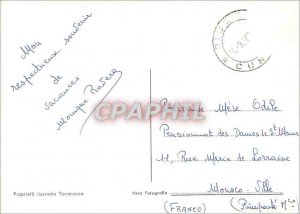 Mon
respectueux souvenir
de
vacances
Monique
CUN
CPAPHIL.com
Mère Odile
Pensionnat des Dames de St Maur
11, Rue Marie de Lorraine
Monaco - Ville
(FRANCE) (Principauté
Proprietà riservata
Vera Fotografia